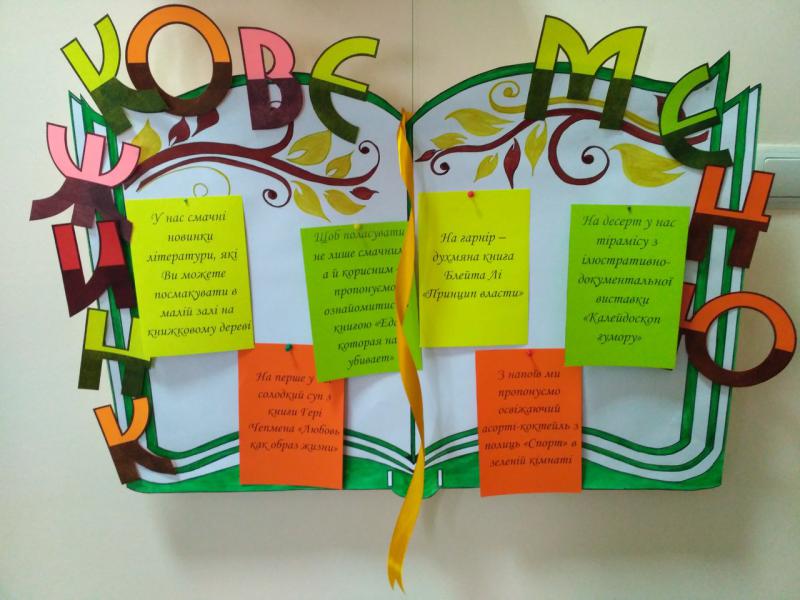 КНИЖКОВЕ
МЕНЮ
У нас смачні
новинки
літератури, які
Ви можете
посмакувати в
малій залі на
книжковому дереві
Щоб поласувати
не лише смачним
а й корисним
пропонуємо
книгою «Еда
которая
убивает»
На перше у
солодкий суп з
книги Гері
Чепмена «Любовь
как образ жизни»
На гарнір –
духмяна книга
Блейта Лі
«Принцип власти»
З напоїв ми
пропонуємо
освіжаючий
асорті-коктейль з
полиць «Спорт» в
зеленій кімнаті
На десерт у нас
тірамісу з
ілюстративно-
документальної
виставки
«Калейдоскоп
гумору»